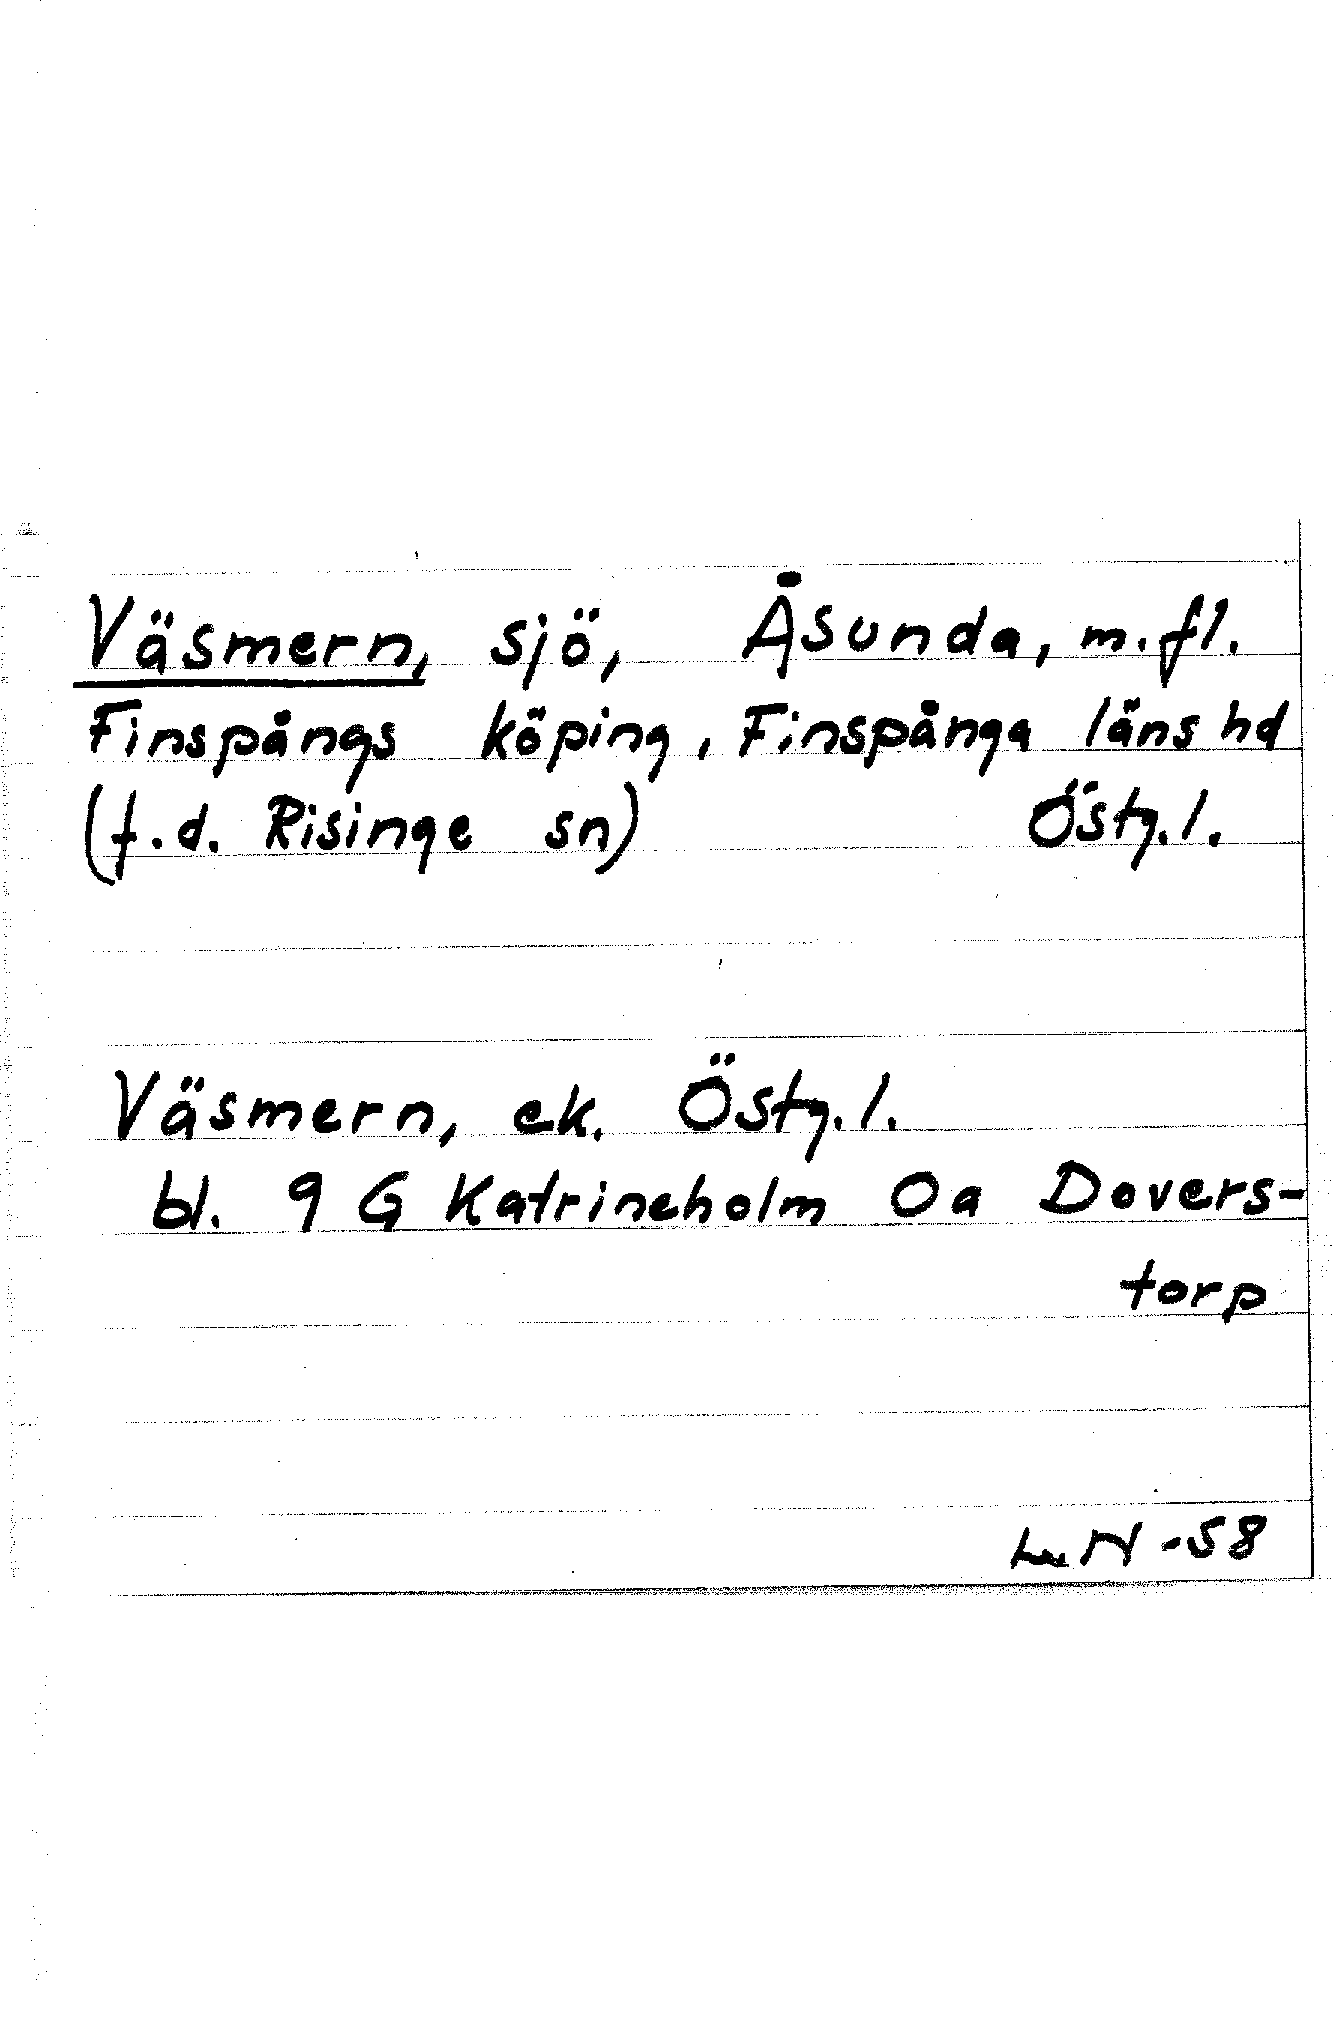 Väsmern, sjö, Åsunda, m.fl.
Finspångs köping, Finspånga läns hd
(f.d. Risinge sn) Östg.l.
Väsmern, ek. Östg.l.
bl. 9 G Katrineholm 0a Dovers-
torp
-58